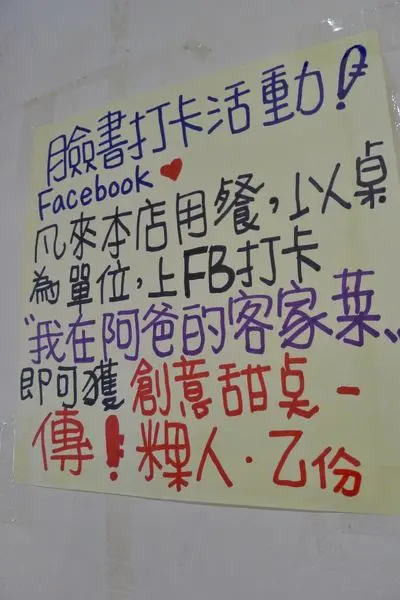 臉書打卡活動!
Facebook ♥
凡來本店用餐,以桌
為單位,上FB打卡
"我在阿爸的客家菜"
即可獲 創意甜桌-
傳!粿人·乙份